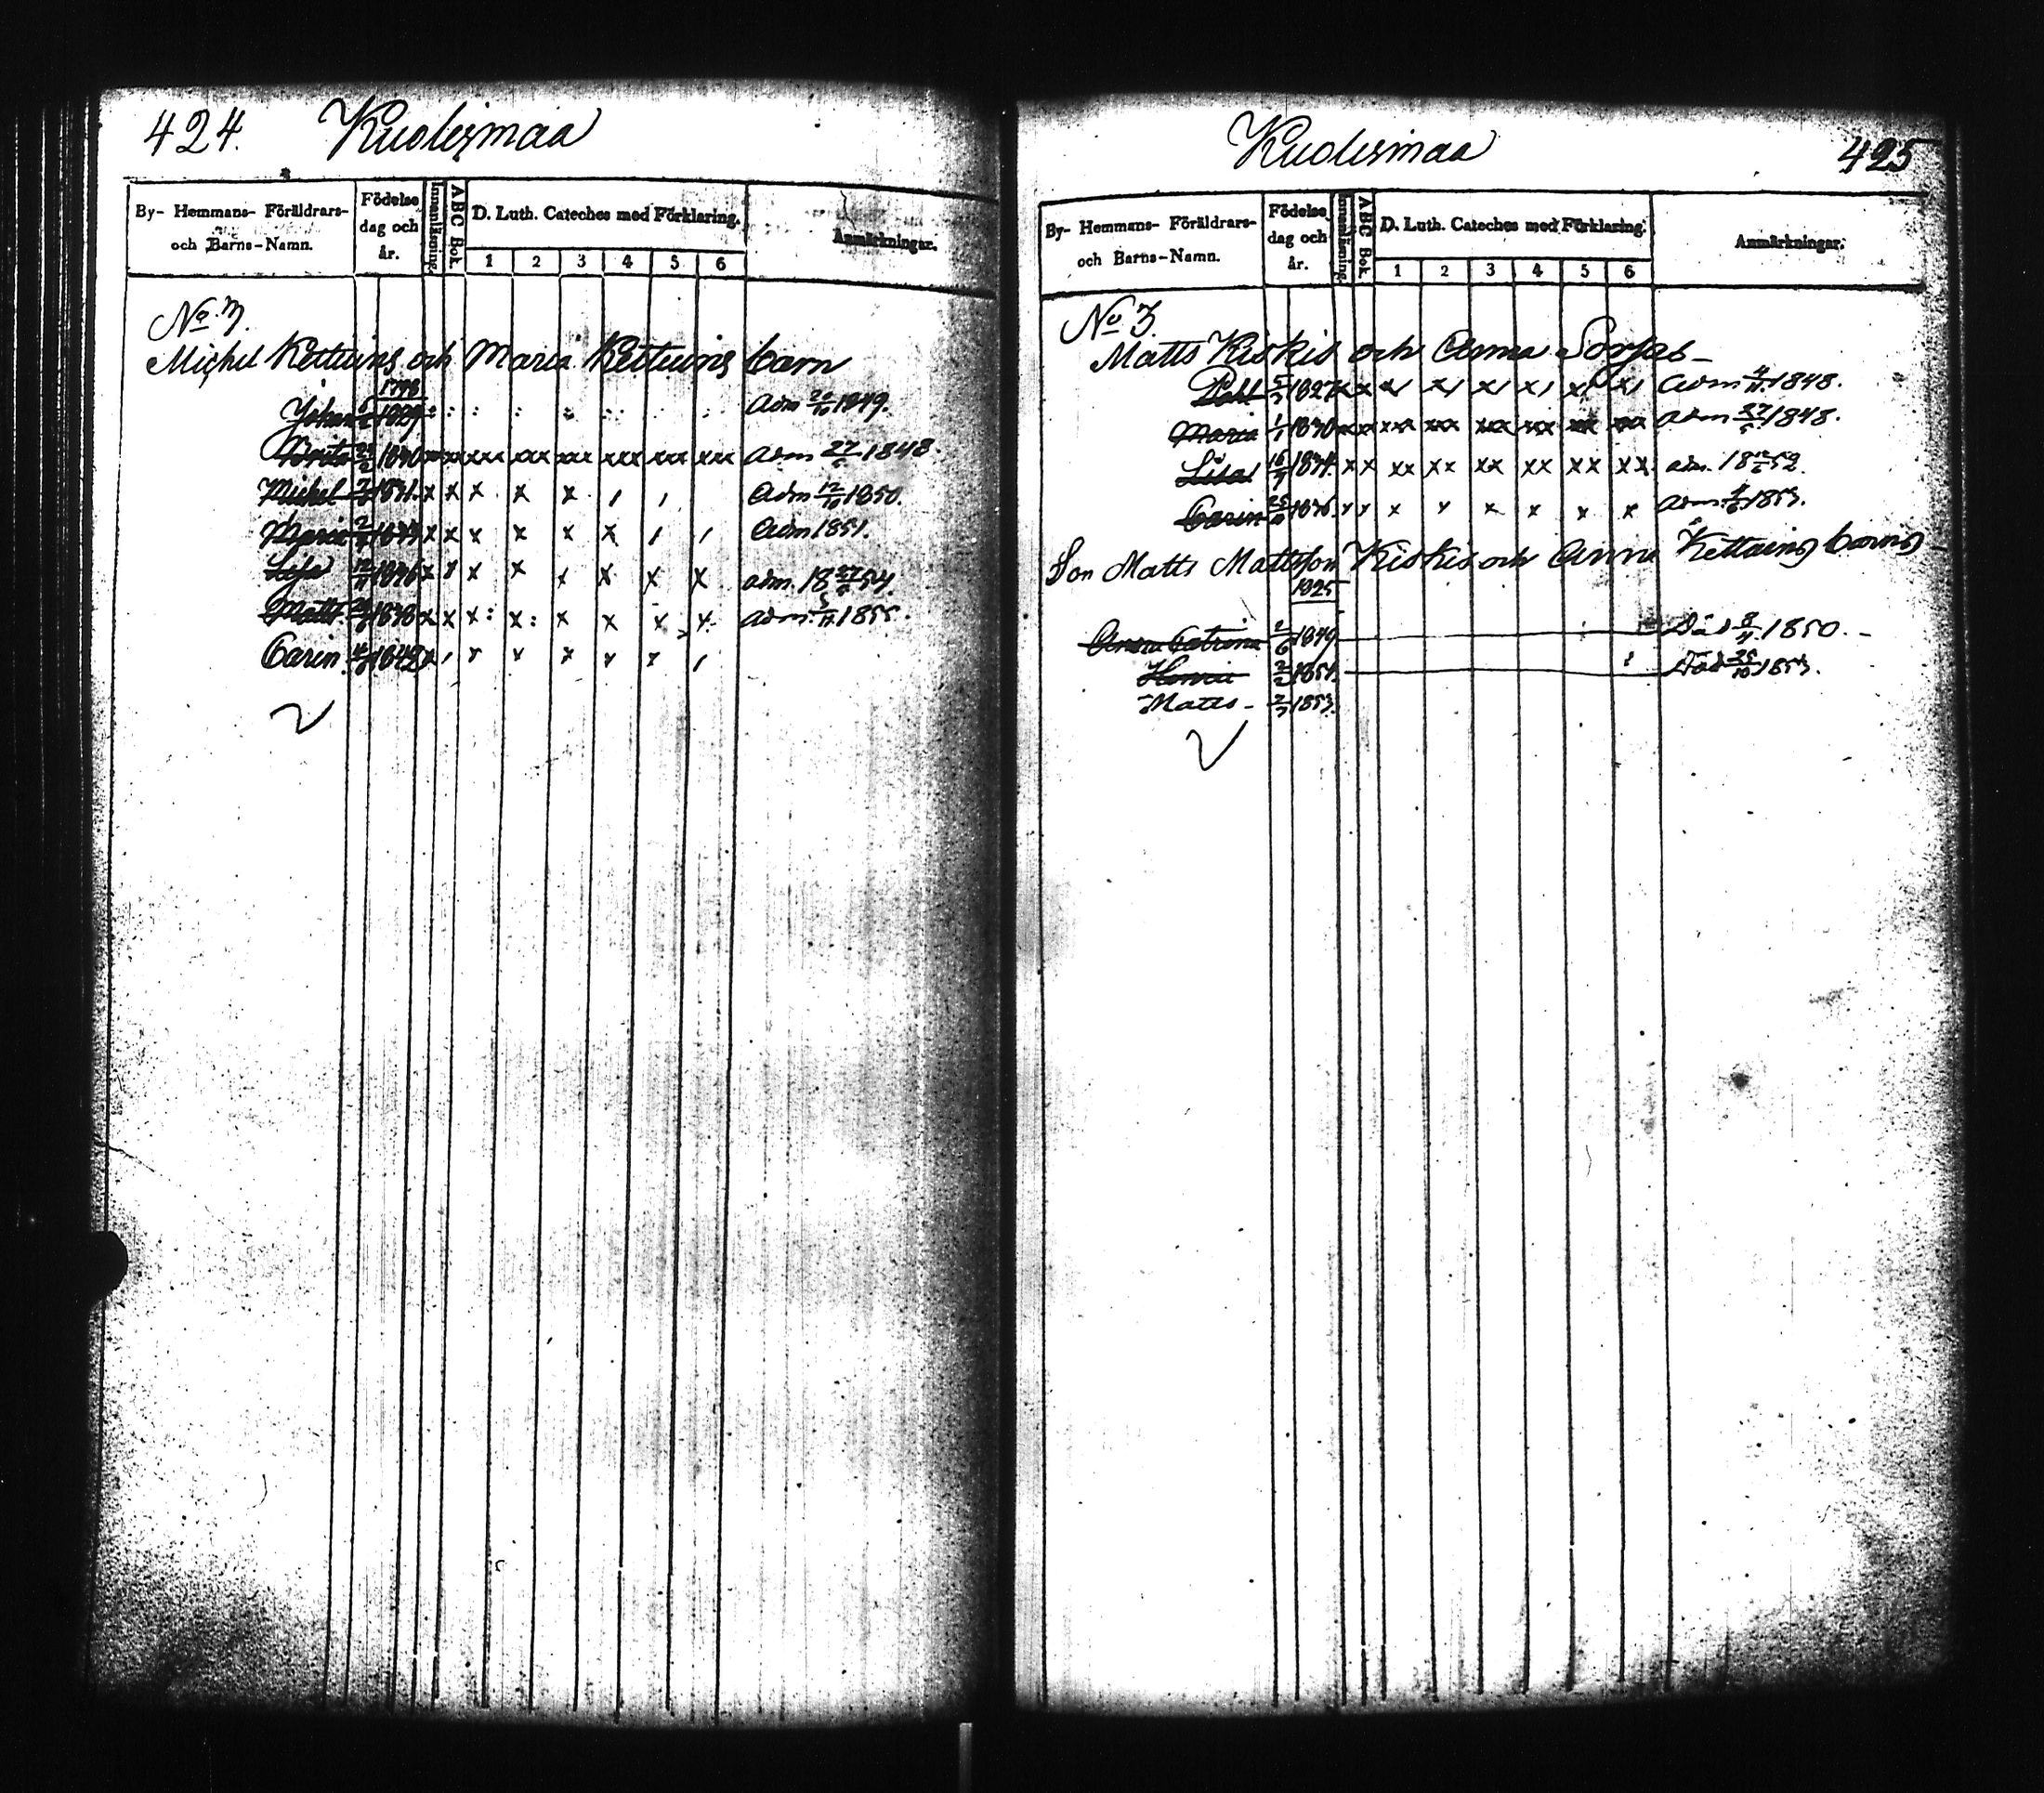 424. Kuolesmaa
By- Hemmans- Föräldrars- och Barns-Namn. Födelse dag och år. Innanläsning. ABC Bok. D. Luth. Cateches med Förklaring. Anmärkningar.
1 2 3 4 5 6
No 3.
Michel Kettuins och Maria Kettuins barn
1798
Johan 1829 : : : : : Adm 20/10 1849.
Brita 1830 xx xx xxx xxx xxx xxx xxx xxx adm 27/5 1848.
Michel 1831. x x x x x / / Adm 12/10 1850.
Maria x x x x x x / / Adm 1851.
1836 x x x x x x x adm. 18 54.
Matts. 1838 x x x: x: x x x x adm. 1855.
Carin 1842 x / x x x x x /
Kuolesmaa 425
By- Hemmans- Föräldrars- och Barns-Namn. Födelse dag och år. Innanläsning. ABC Bok. D. Luth. Cateches med Förklaring. Anmärkningar.
1 2 3 4 5 6
No 3.
Matts Kiskis och Anna Sorjas-
1827 x x x/ x/ x/ x/ x/ x/ Adm 4/11 1848.
Maria 1/1 1830 xx xx xxx xxx xxx xxx xxx xxx adm 27/5 1848.
Lisa 1834. x x xx xx xx xx xx xx adm. 18 52.
Carin 1836. x x x x x x x x adm 1853.
Son Matts Mattsson Kiskis och Anna Kettuins barns
1825
Anna Catrina 2/6 1849. Död 8/4 1850.-
2/2 1851. Död 25/10 1853.
Matts- 2/3 1853.